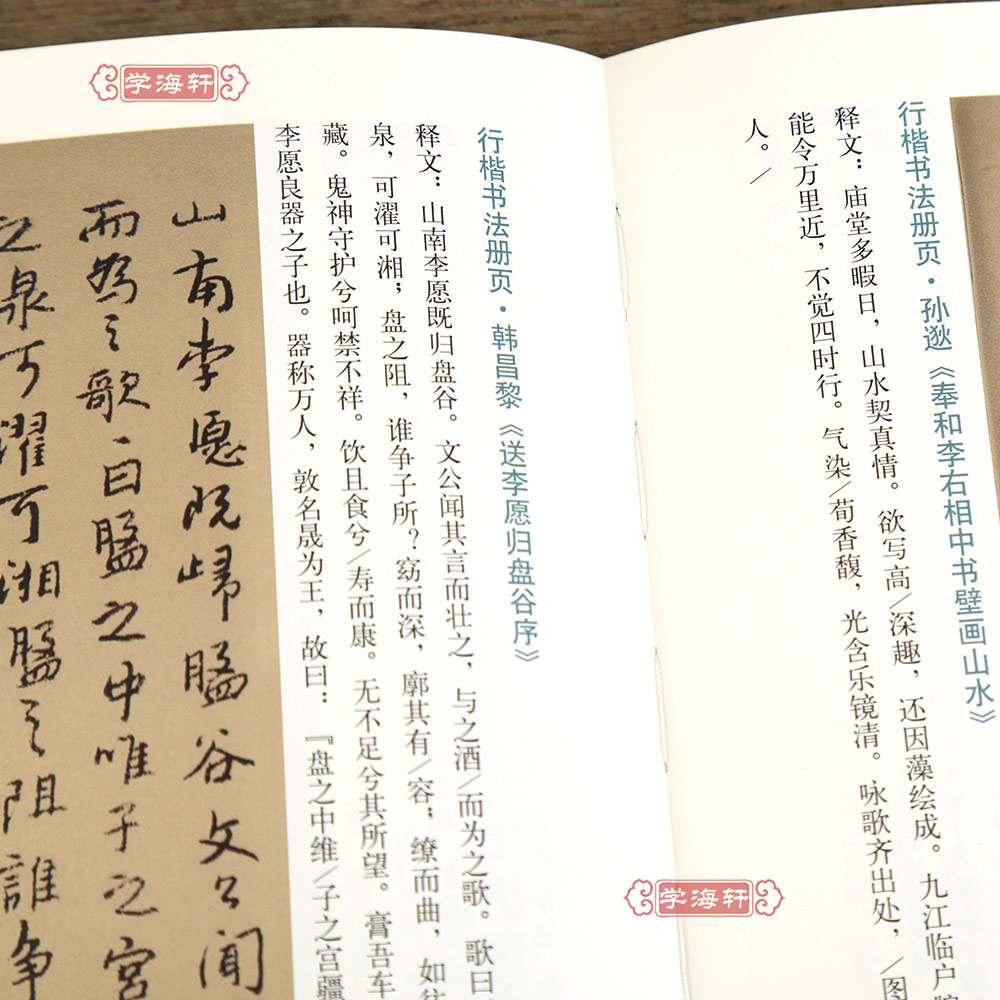 行楷书法册页·孙逖《奉和李右相中书壁画山水》
释文：庙堂多暇日，山水契真情。欲写高/深趣，还因藻绘成。九江临户
能令万里近，不觉四时行。气染/荀香馥，光含乐镜清。咏歌齐出处，/图
人。/
行楷书法册页·韩昌黎《送李愿归盘谷序》
释文：山南李愿既归盘谷。文公闻其言而壮之，与之酒/而为之歌。歌曰
泉，可濯可湘；盘之阻，谁争子所？窈而深，廓其有/容；缭而曲，如往
藏。鬼神守护兮呵禁不祥。饮且食兮/寿而康。无不足兮其所望。膏吾车
李愿良器之子也。器称万人，敦名晟为王，故曰：『盘之中维/子之宫疆
山南李愿既歸盤谷文公聞
而為之歌曰盤之中唯子之宮
之泉可濯可湘盤之阻誰爭
学海轩
学海轩